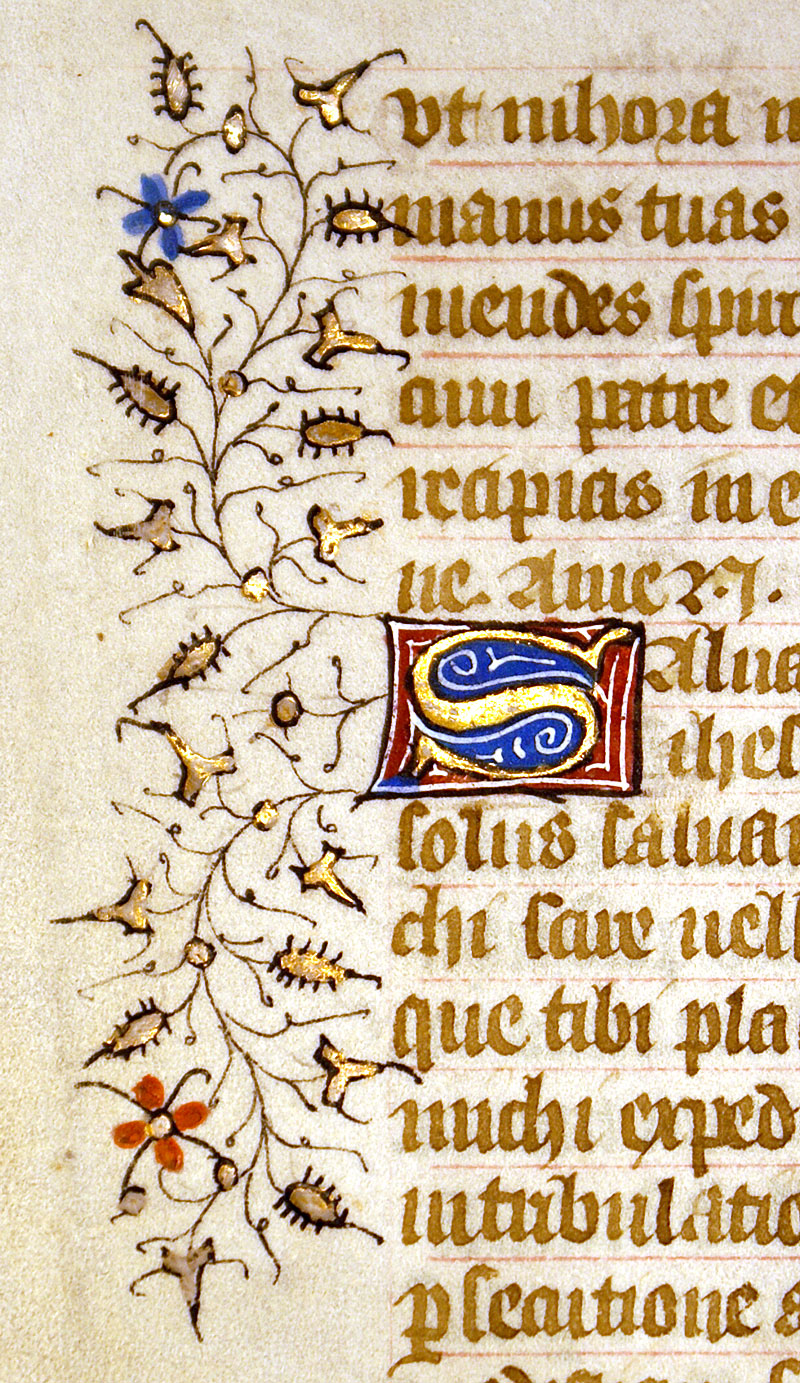 vt in hora
manus tuas
mendes spir
patre et
recipias me
ne. Amen.
Salua
ihes
solus saluar
chi scire uell
que tibi pla
michi exped
in tribulatio
persecutione